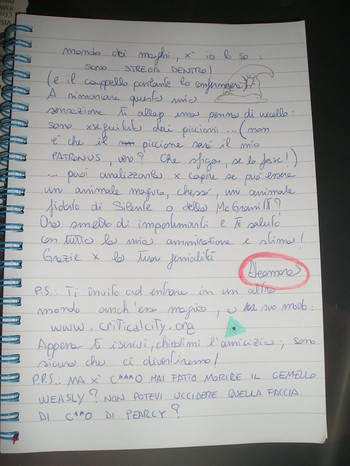 mondo dei maghi, x' io lo so:
SONO STREGA DENTRO!
(e il cappello parlante lo confermerà)
A rimarcare questa mia
sensazione ti allego una penna di uccello:
sono xseguitata dai piccioni... (non
è che il piccione sarà il mio
PATRONUS, vero? Che sfiga, se lo fosse!)
... puoi analizzarla x capire se può essere
un animale magico, chessò, un animale
fidato di Silente o della McGranitt?
Ora smetto di importunarti e ti saluto
con tutta la mia ammirazione e stima!
Grazie x la tua genialità
Eleonora
P.S.: Ti invito ad entrare in un altro
mondo anch'esso magico, a suo modo:
www.criticalcity.org
Appena ti iscrivi, chiedimi l'amicizia, sono
sicura che ci divertiremo!
P.P.S.: MA X' C***O HAI FATTO MORIRE IL GEMELLO
WEASLY? NON POTEVI UCCIDERE QUELLA FACCIA
DI C**O DI PEARCY?